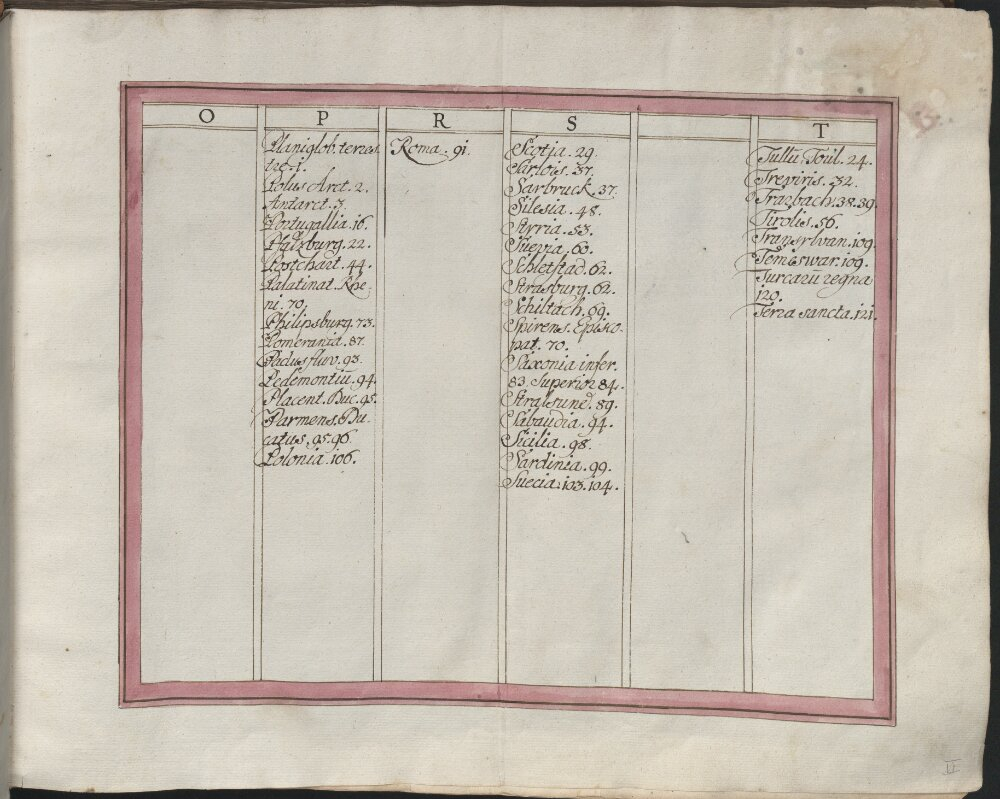 O
P
Planiglob. terres
tre. 1.
Polus Arct. 2.
Antarct. 3.
Portugallia. 16.
Pfalzburg. 22.
Postchart. 44.
Palatinat. Rhe
ni. 70.
Philipsburg. 73.
Pomerania. 87.
Padus fluv. 93.
Pedemontiū. 94.
Placent. Duc. 95.
Parmens. Du
catus. 95. 96.
Polonia. 106.
R
Roma. 91.
S
Scotja. 29.
Sarlois. 37.
Sarbruck. 37.
Silesia. 48.
Styria. 53.
Suevia. 60.
Schletstad. 62.
Strasburg. 62.
Schiltach. 69.
Spirens. Episco
pat. 70.
Saxonia infer.
83. Superior 84.
Stralsund. 89.
Sabaudia. 94.
Sicilia. 98.
Sardinia. 99.
Suecia. 103. 104.
T
Tullū, Toul. 24.
Treviris. 32.
Trarbach. 38. 39.
Tirolis. 56.
Transylvan. 109.
Temeswar. 109.
Turcarū regna
120.
Terra sancta. 121.
II